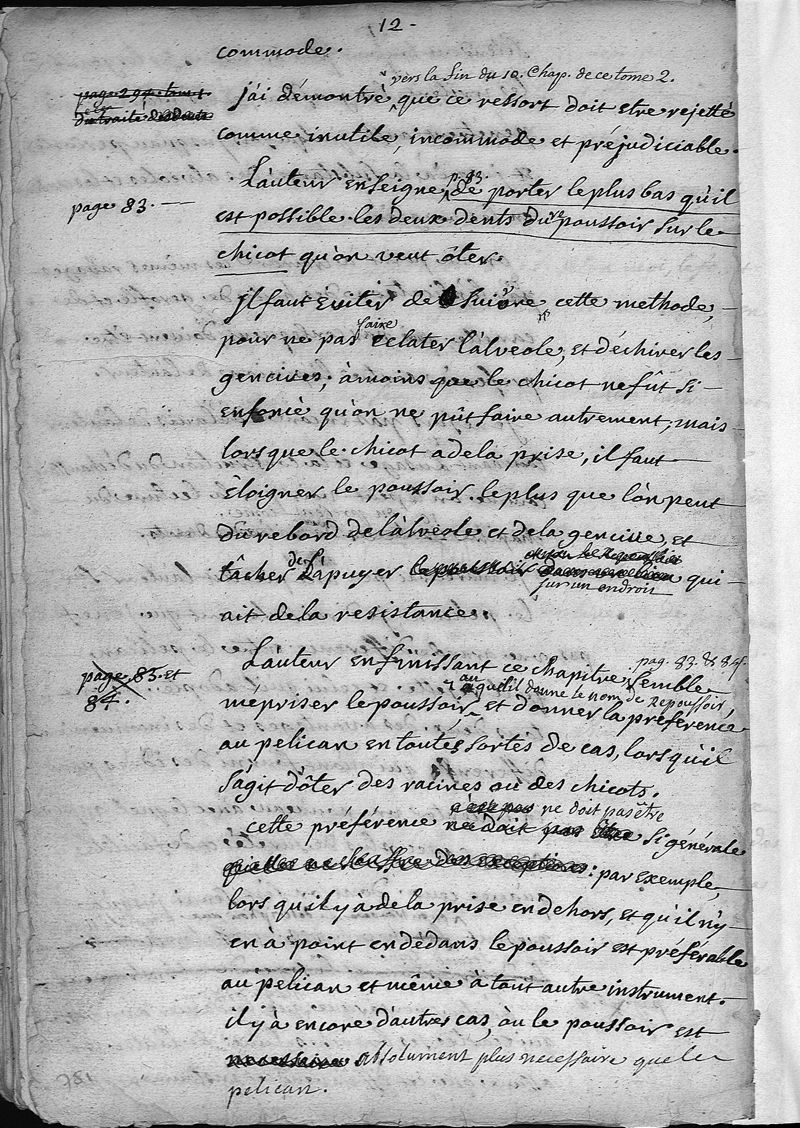 12-
commode.
vers la fin du 10. Chap. de ce tome 2.
page 294. tom 1
du traité
j'ai démontré que ce ressort doit estre rejetté
comme inutile, incommode et préjudiciable.
p. 83.
page 83. —
L'auteur enseigne, de porter le plus bas qu'il
est possible les deux dents du poussoir sur le
chicot qu'on veut ôter.
il faut eviter de suivre cette methode,
faire
pour ne pas eclater l'alveole, et déchirer les
gencives; à moins que le chicot ne fût si
enfoncé qu'on ne pût faire autrement, mais
lors que le chicot a de la prise, il faut
éloigner le poussoir le plus que l'on peut
du rebord de l'alvéole et de la gencive, et
tâcher de l'apuyer le poussoir qui
sur un endroit
ait de la resistance.
pag. 83. & 84.
page 83. et
84.
L'auteur en finissant ce chapitre semble
au quel il donne le nom de Repoussoir
mépriser le poussoir, et donner la préférence
au pelican en toutes sortes de cas, lors qu'il
s'agit d'ôter des racines ou des chicots.
ne doit pas être
cette préférence ne doit pas être si générale
: par exemple,
lors qu'il y à de la prise en dehors, et qu'il n'y
en à point en dédans le poussoir est préférable
au pelican et même à tout autre instrument.
il y à encore d'autres cas, où le poussoir est
necessaire absolument plus necessaire que le
pelican.